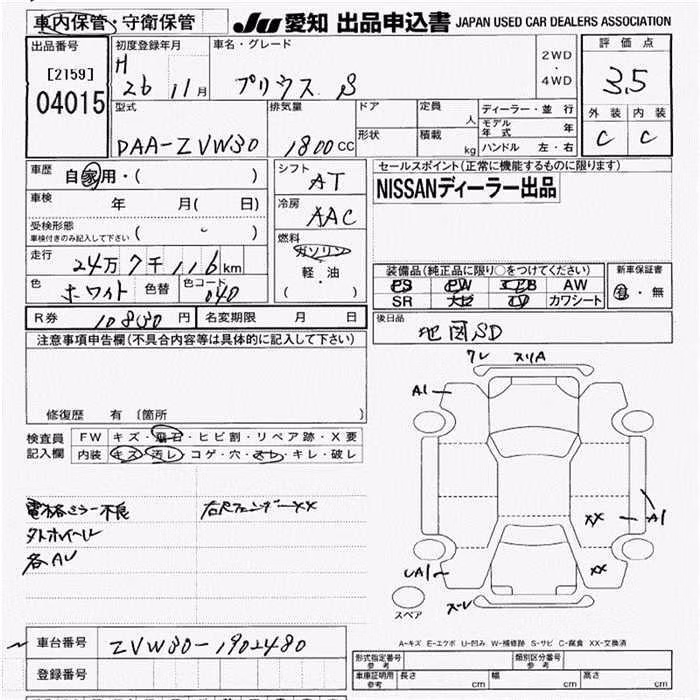 車内保管・守衛保管
JU 愛知 出品申込書 JAPAN USED CAR DEALERS ASSOCIATION
出品番号
[2159]
04015
初度登録年月
H
26 11月
車名・グレード
プリウス S
2WD
・
4WD
評価点
3.5
外装 内装
C C
型式
DAA-ZVW30
排気量
1800 CC
ドア
形状
定員
人
積載
kg
ディーラー・並行
モデル年式 年
ハンドル 左・右
車歴
自家用・( )
車検 年 月( 日)
受検形態
車検付きのみ記入して下さい ( )
走行
24万7千116km
色
ホワイト 色替
色コード
040
シフト
AT
冷房
AAC
燃料
ガソリン
軽・油
( )
セールスポイント(正常に機能するものに限ります)
NISSANディーラー出品
装備品(純正品に限り○をつけてください)
PS PW エアB AW
SR ナビ TV カワシート
新車保証書
有・無
R券 10830円
名変期限 月 日
後日品
地図SD
注意事項申告欄(不具合内容等は具体的に記入して下さい)
修復歴 有 〔箇所 〕
検査員
記入欄
FW キズ・飛石・ヒビ割・リペア跡・X要
内装 キズ・汚レ・コゲ・穴・スレ・キレ・破レ
ワレ スリA
A1
電格ミラー不良
右Rフェンダー XX
外ホイール
各AU
XX
A1
XX
UA1
スレ
スペア
A-キズ E-エクボ U-凹み W-補修跡 S-サビ C-腐食 XX-交換済
車台番号 ZVW30-1902480
登録番号
形式指定番号
参考
類別区分番号
参考
車庫証明用
参考
長さ cm
幅 cm
高さ cm